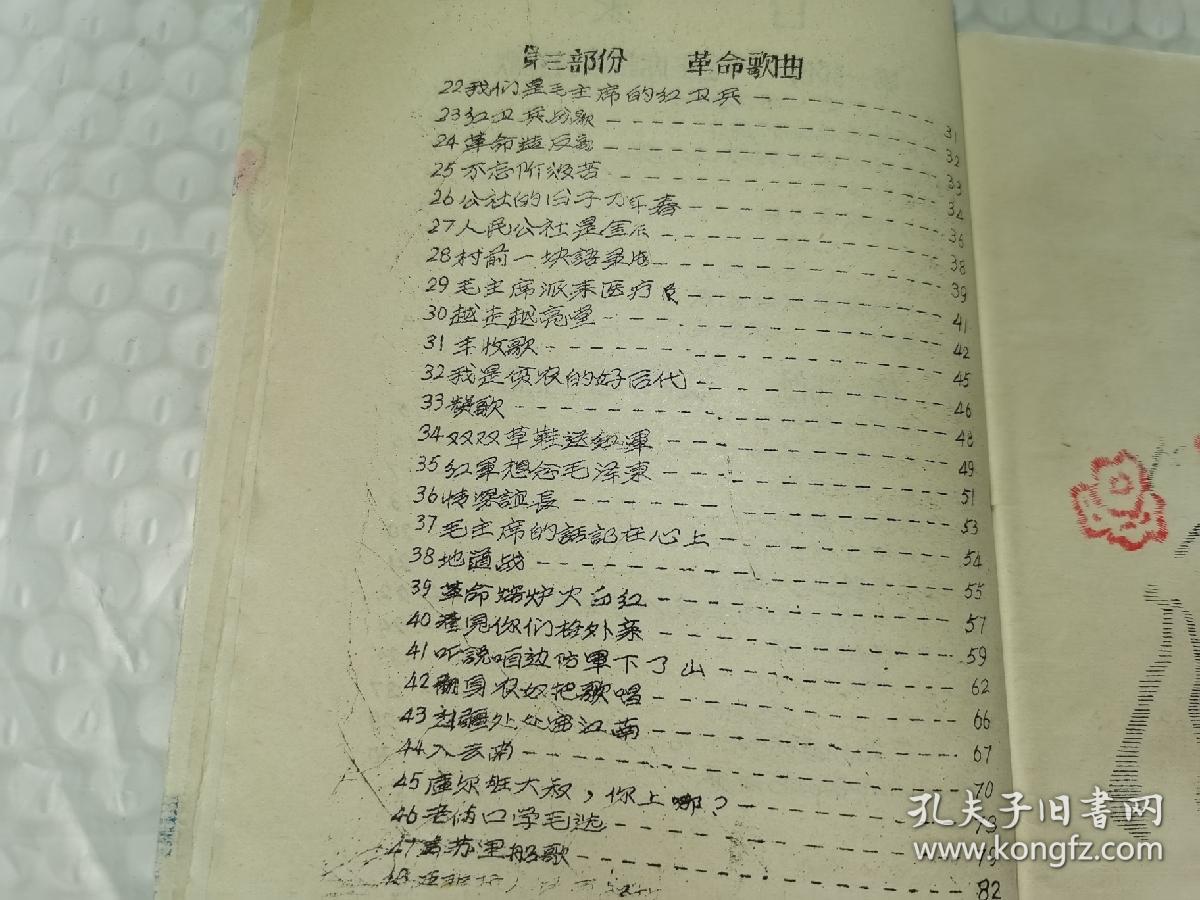 第三部份 革命歌曲
22 我们是毛主席的红卫兵 31
23 红卫兵战歌 32
24 革命造反 33
25 不忘阶级苦 34
26 公社的日子万年春 36
27 人民公社是 38
28 村前一块語录 39
29 毛主席派来医疗 41
30 越走越亮堂 42
31 丰收歌 45
32 我是贫农的好后代 46
33 讃歌 48
34 双双草鞋送红軍 49
35 红軍想念毛泽東 51
36 情深誼長 53
37 毛主席的話記在心上 54
38 地道战 55
39 革命熔炉火白红 57
40 看見你们格外亲 59
41 听說咱边防軍下了山 62
42 翻身农奴把歌唱 66
43 边疆处处赛江南 67
44 入云南 70
45 庫尔班大叔，你上哪？ 73
46 老俩口学毛选 79
47 烏苏里船歌 82
48
孔夫子旧書网
www.kongfz.com